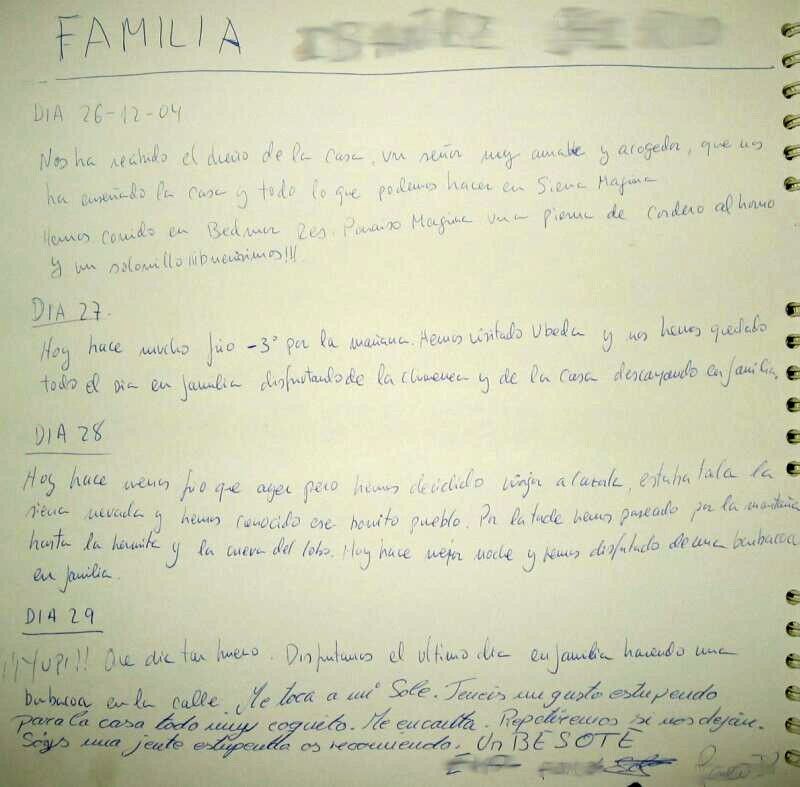 FAMILIA
DIA 26-12-04
Nos ha recibido el dueño de la casa, un señor muy amable y acogedor, que nos
ha enseñado la casa y todo lo que podemos hacer en Sierra Magina
Hemos comido en Bedmar Res. Paraiso Magina una pierna de cordero al horno
y un solomillo ¡¡¡buenisimos!!!
DIA 27.
Hoy hace mucho frio -3° por la mañana. Hemos visitado Ubeda y nos hemos quedado
todo el dia en familia disfrutando de la chimenea y de la casa descansando en familia.
DIA 28
Hoy hace menos frio que ayer pero hemos decidido viajar a cazorla, estaba toda la
sierra nevada y hemos conocido ese bonito pueblo. Por la tarde hemos paseado por la montaña
hasta la hermita y la cueva del lobo. Hoy hace mejor noche y hemos disfrutado de una barbacoa
en familia.
DIA 29
¡¡¡YUPI!!! Que dia tan bueno. Disfrutamos el ultimo dia en familia haciendo una
barbacoa en la calle. Me toca a mi Sole. Teneis un gusto estupendo
para la casa todo muy coqueto. Me encanta. Repetiremos si nos dejan.
Soys una jente estupenda os recomiendo. Un BESOTE